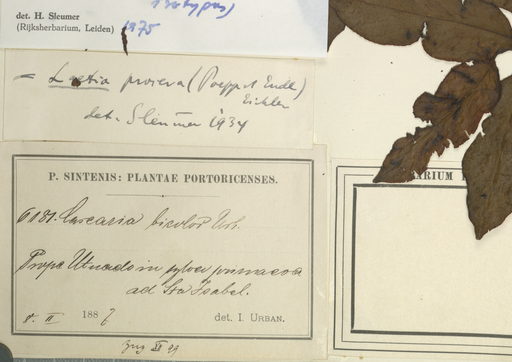 det. H. Sleumer
(Rijksherbarium, Leiden)
1975
= Laetia procera (Poepp. et Endl.)
Eichler
det. Sleumer 1934
P. SINTENIS: PLANTAE PORTORICENSES.
6181. Casearia bicolor Urb.
Prope Utuado in sylva primaeva
ad Sta Isabel.
8. II 1887 det. I. URBAN.